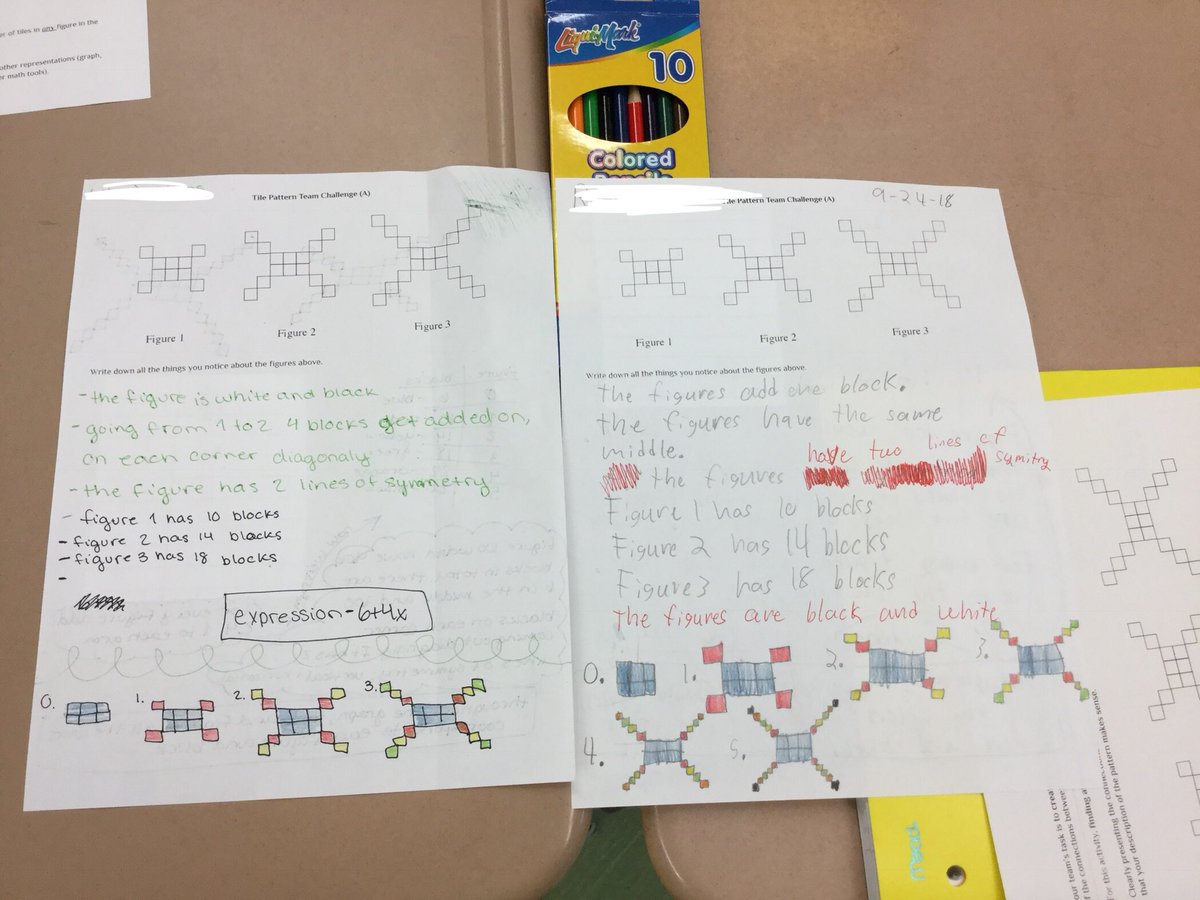 er of tiles in any figure in the
other representations (graph,
er math tools).
LiquiMark
10
Colored
Pencils
Tile Pattern Team Challenge (A)
Figure 1
Figure 2
Figure 3
Write down all the things you notice about the figures above.
- the figure is white and black
- going from 1 to 2 4 blocks get added on,
on each corner diagonaly
- the figure has 2 lines of symmetry
- figure 1 has 10 blocks
- figure 2 has 14 blocks
- figure 3 has 18 blocks
-
expression - 6+4x
0.
1.
2.
3.
ile Pattern Team Challenge (A)
9-24-18
Figure 1
Figure 2
Figure 3
Write down all the things you notice about the figures above.
The figures add one block.
the figures have the same
middle.
the figures have two lines of symitry
Figure 1 has 10 blocks
Figure 2 has 14 blocks
Figure 3 has 18 blocks
The figures are black and white
0.
1.
2.
3.
4.
5.
mead
our team's task is to crea
f the connections betwee
For this activity, finding a
Clearly presenting the connec
that your description of the pattern makes sense.